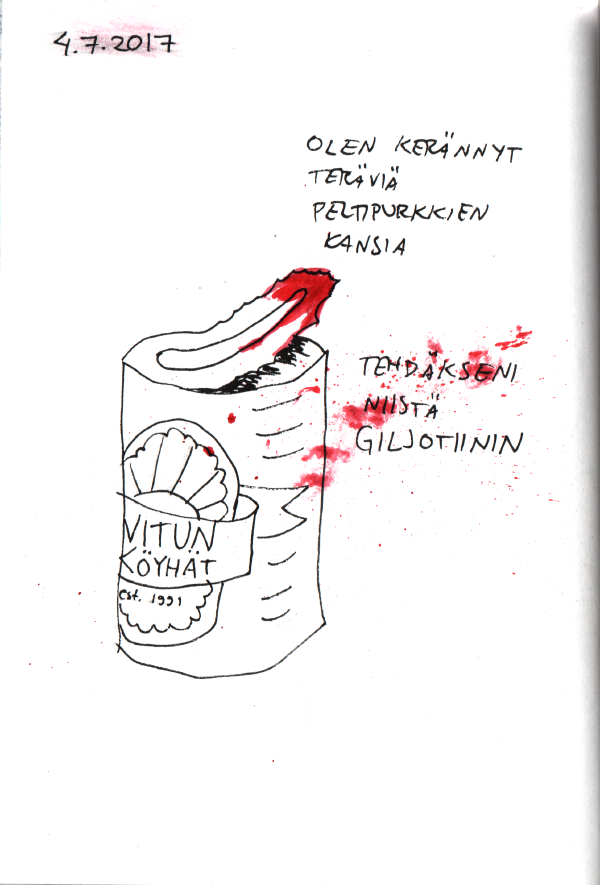 4.7.2017
OLEN KERÄNNYT
TERÄVIÄ
PELTIPURKKIEN
KANSIA
TEHDÄKSENI
NIISTÄ
GILJOTIININ
VITUN
KÖYHÄT
est. 1991